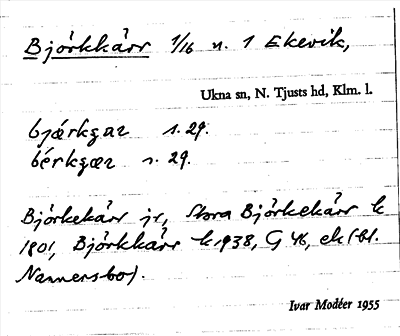 Björkkärr 1/16 n. 1 Ekevik,
Ukna sn, N. Tjusts hd, Klm. l.
bjǽrkgar s. 29.
bérkgær s. 29.
Björkekärr jr, Stora Björkekärr k
1801, Björkkärr k 1938, G 46, ek (-bl.
Nannersbo).
Ivar Modéer 1955